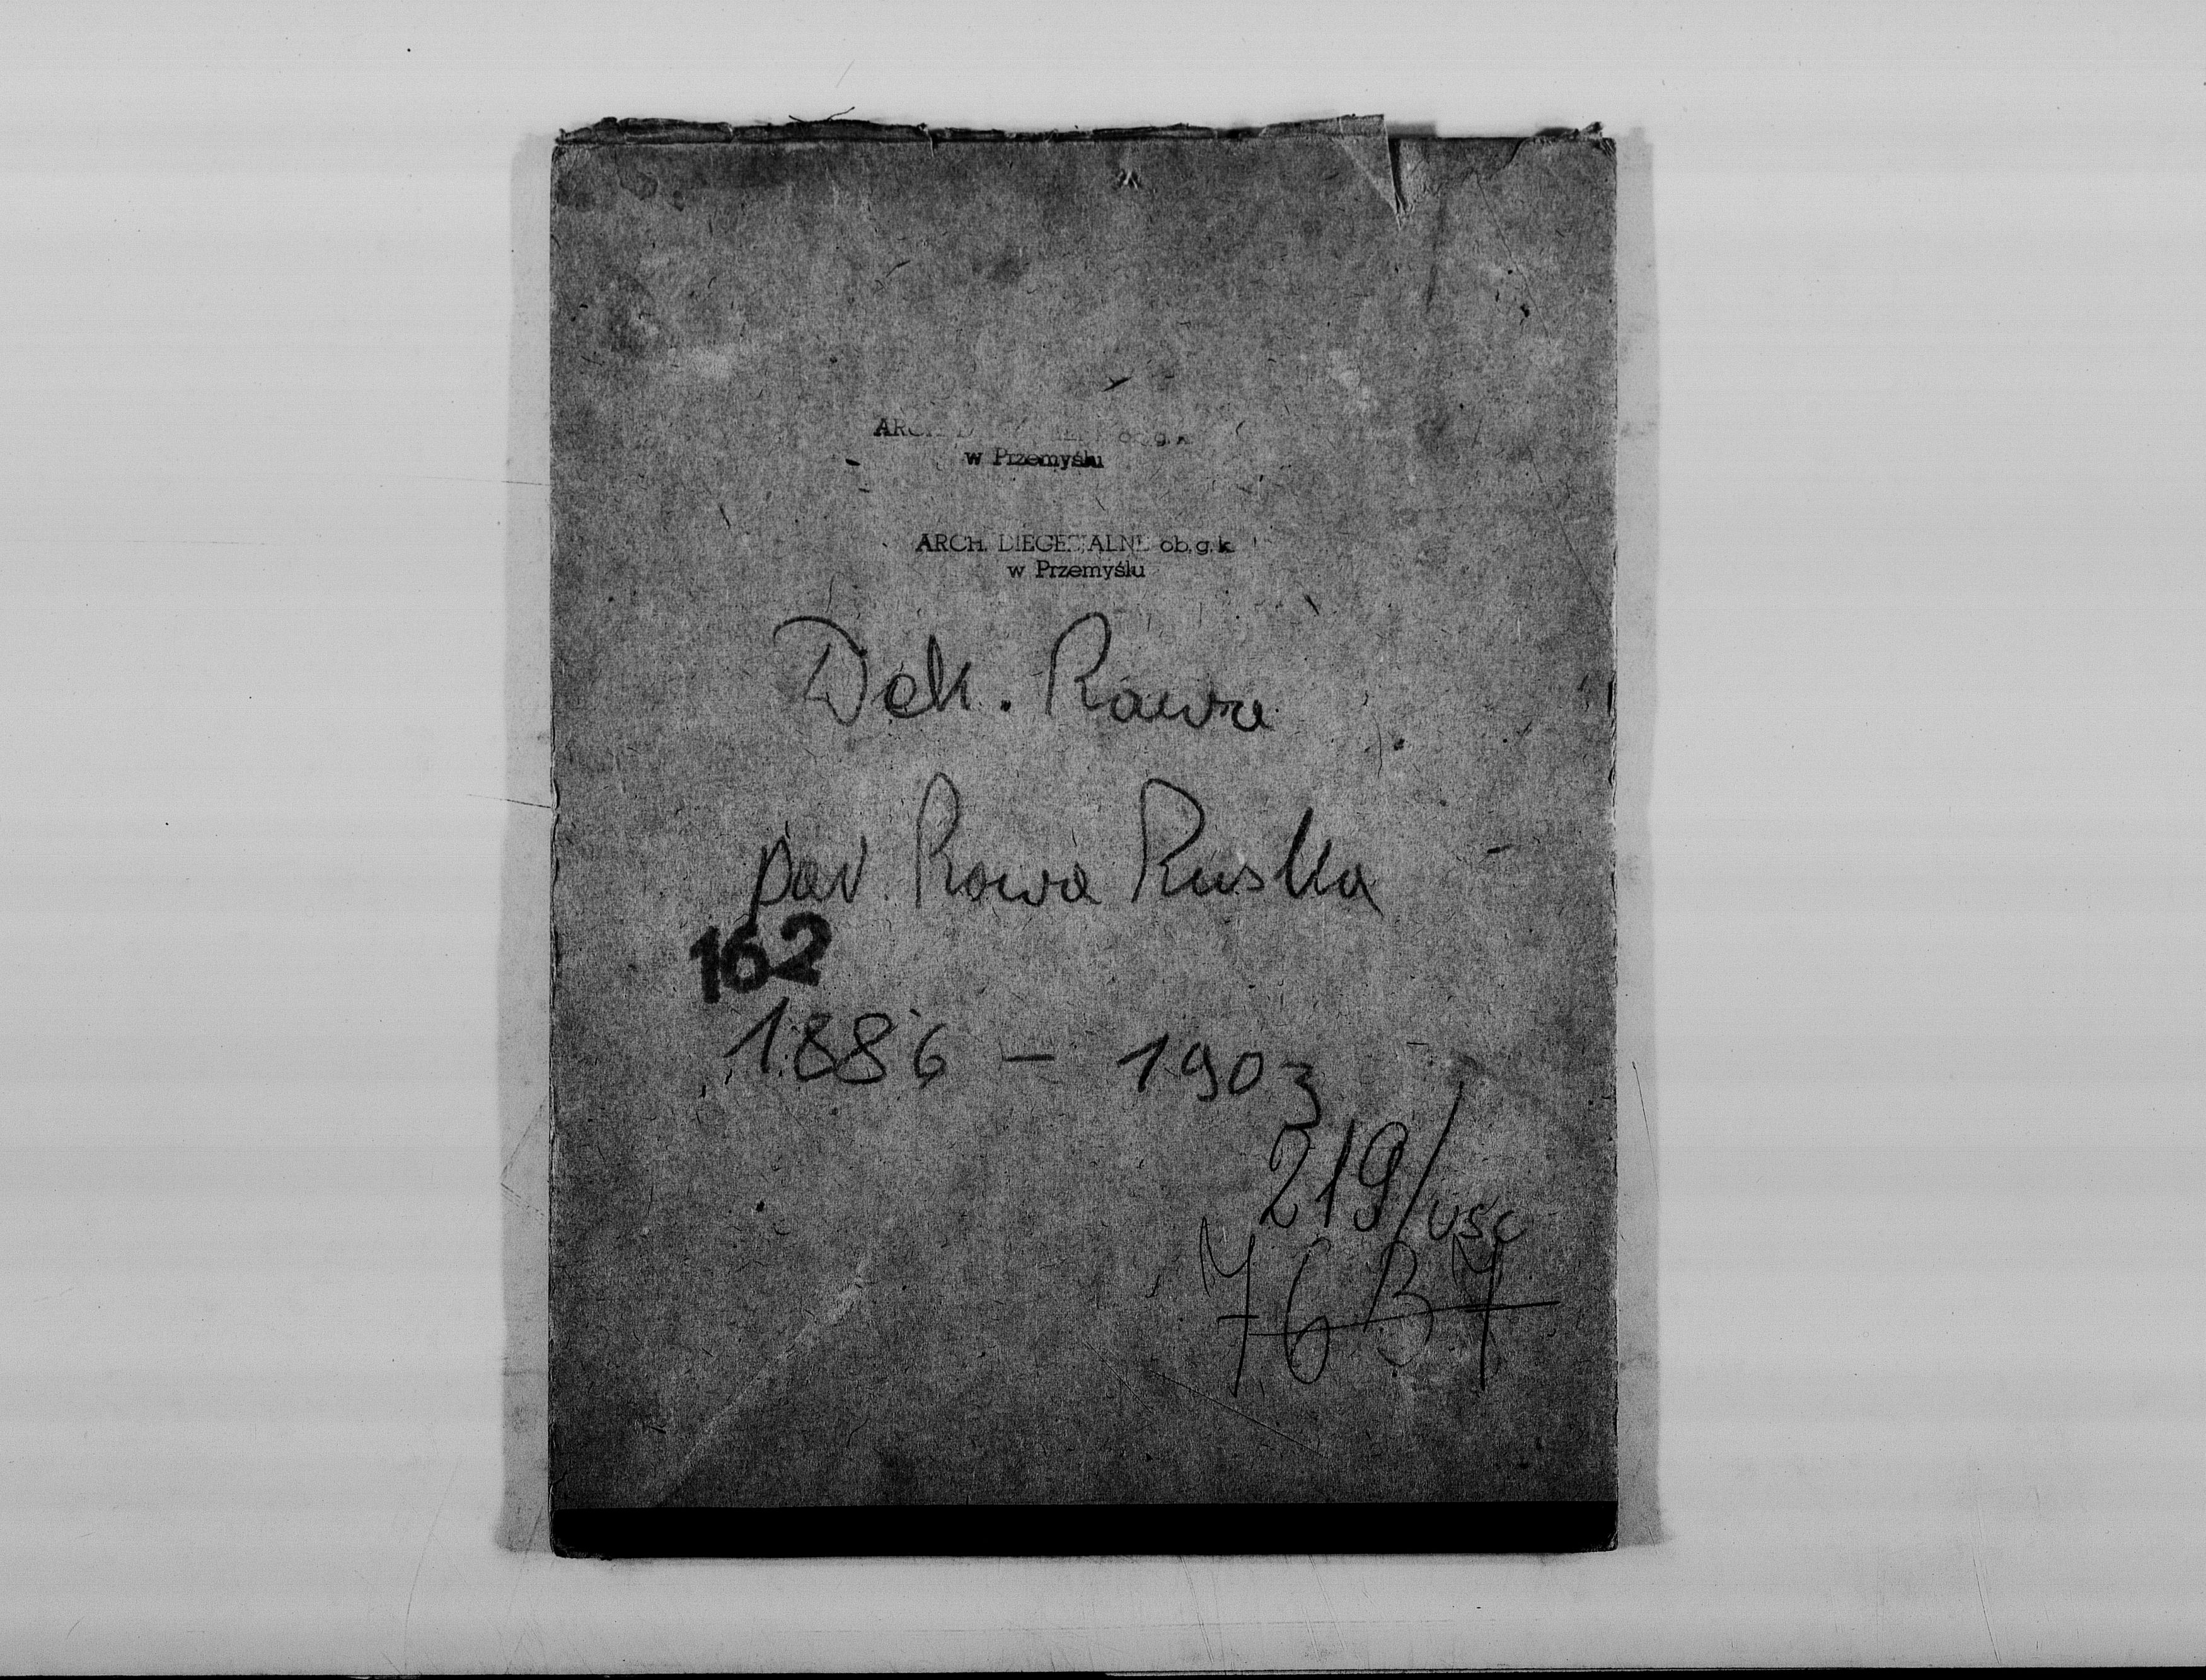 ARCH. ob. g. k.
w Przemyślu
ARCH. DIECEZJALNE ob. g. k.
w Przemyślu
Dek. Rawa
par. Rawa Ruska
162
1886 - 1903
219/usc
76B7